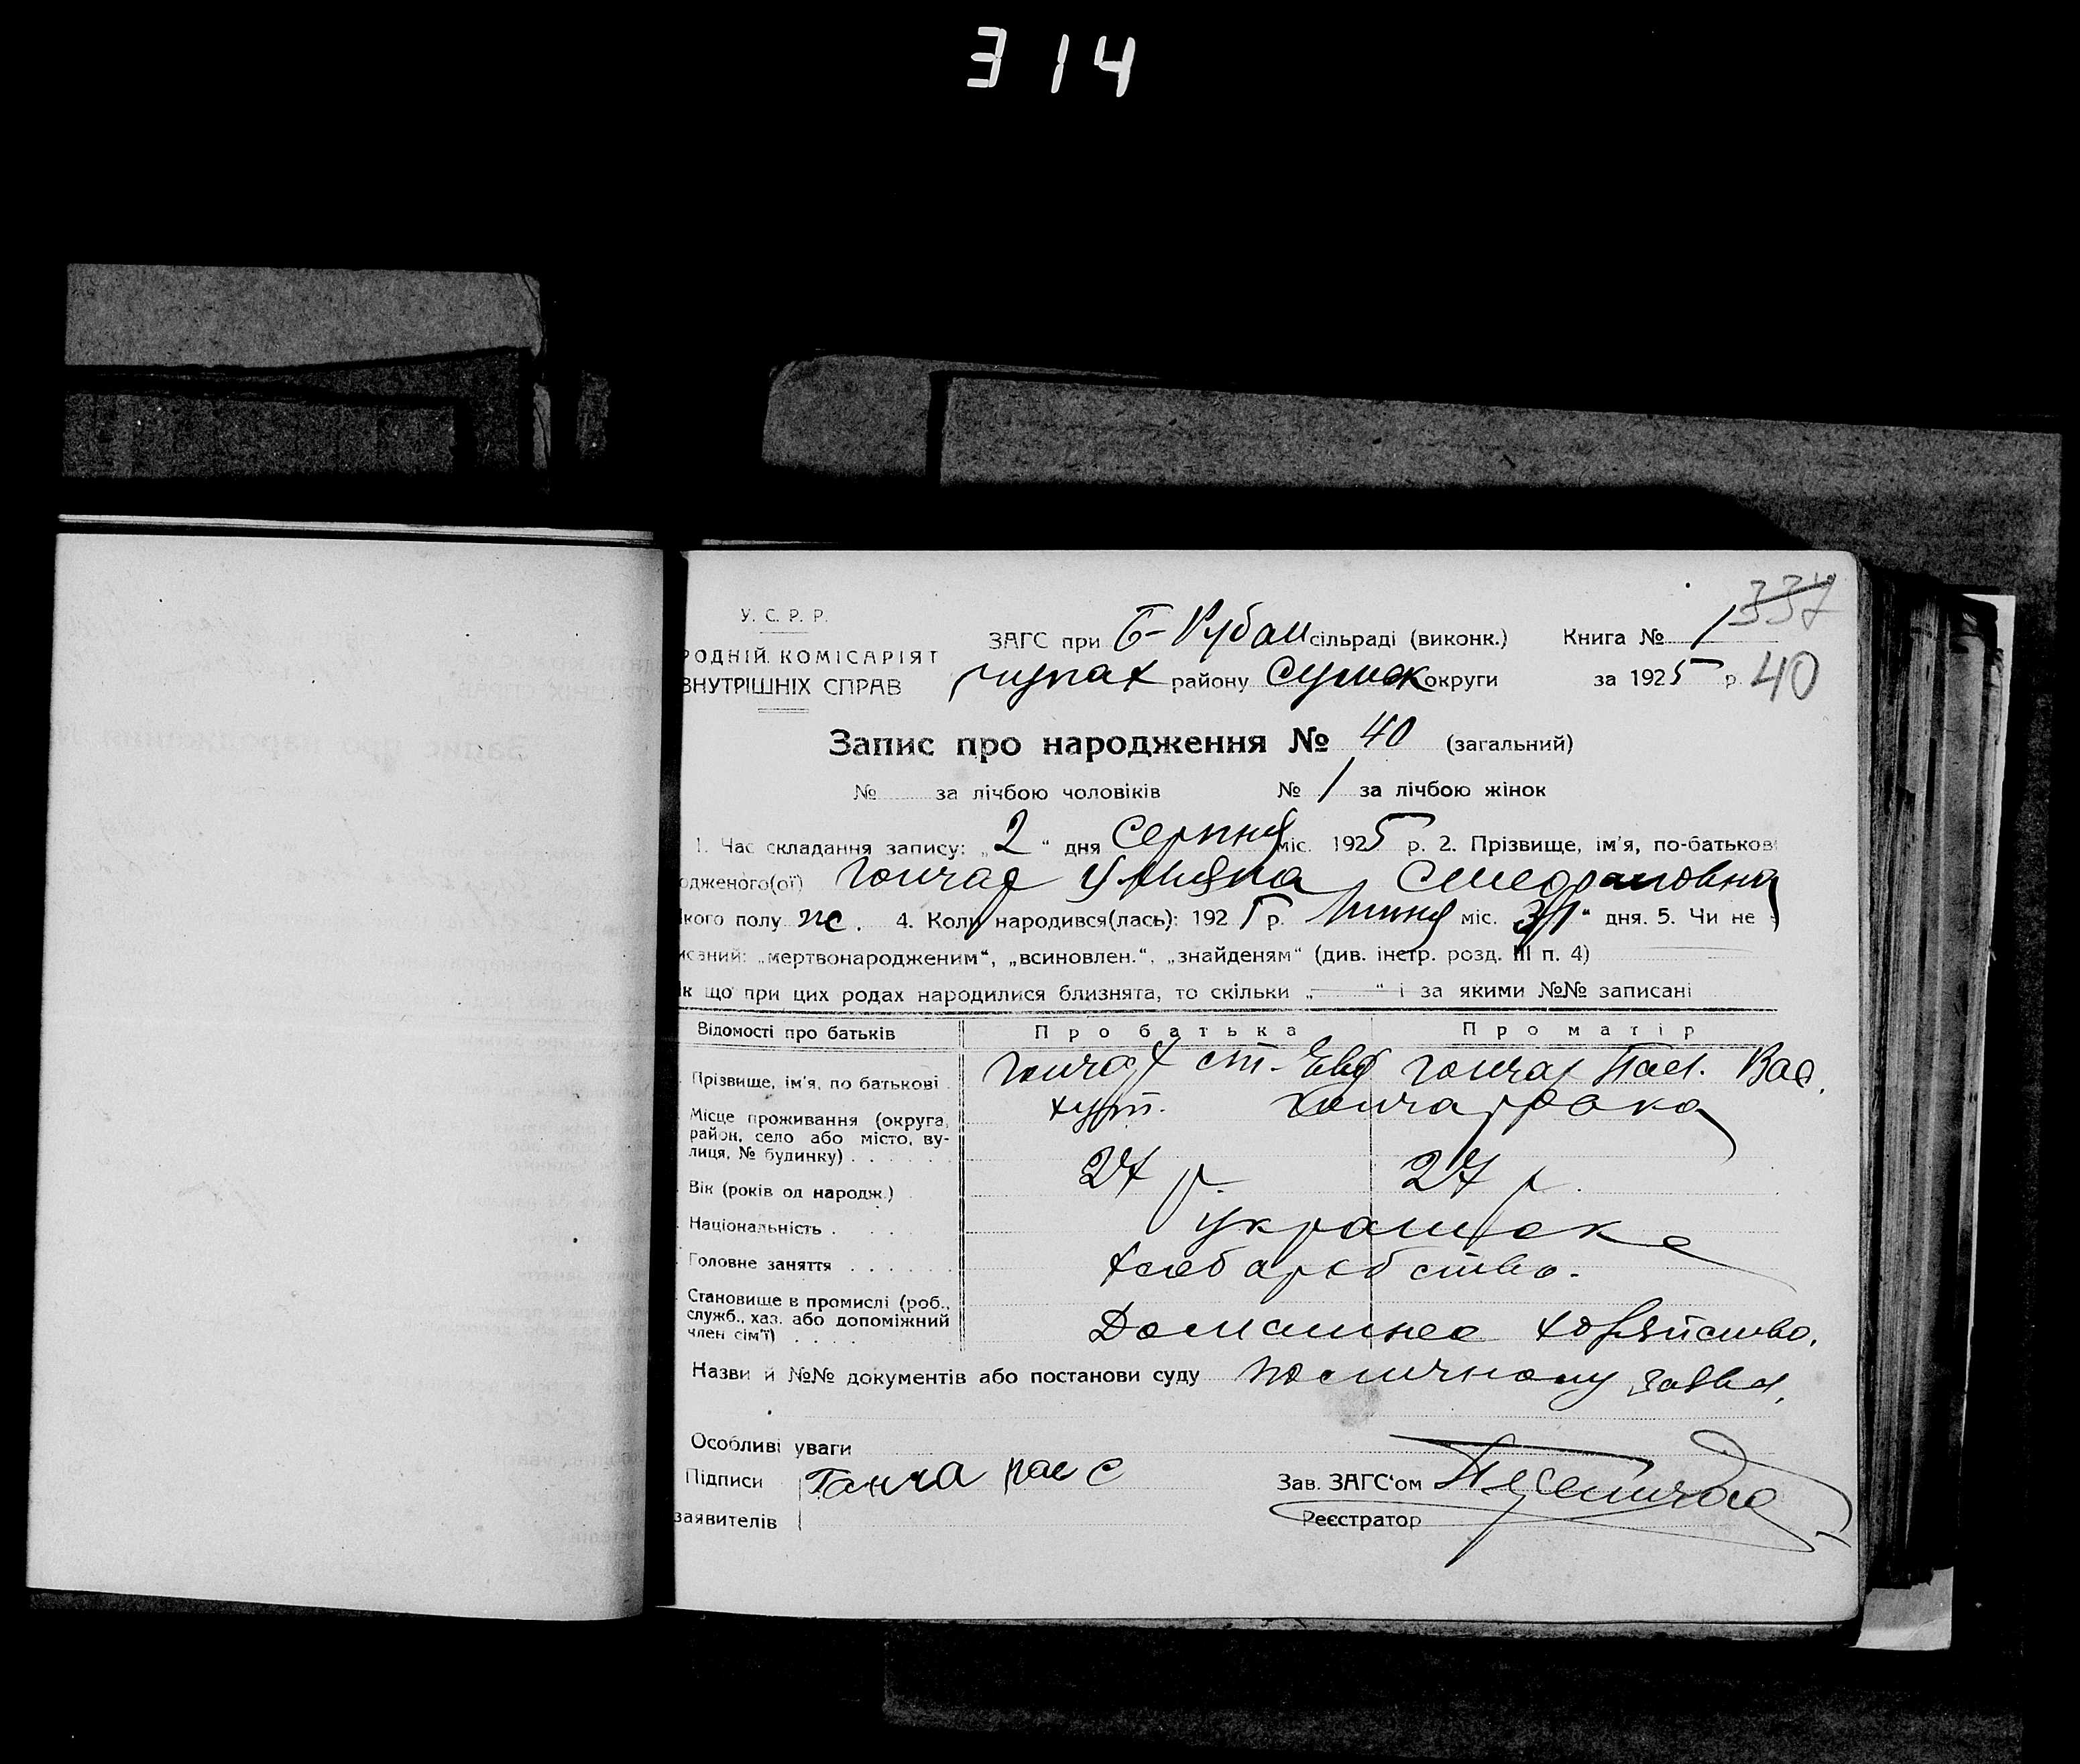 314
337
У. С. Р. Р.
ЗАГС при Б-Рубан сільраді (виконк.) Книга № 1
РОДНІЙ КОМІСАРІЯТ
ВНУТРІШНІХ СПРАВ
району Сумск округи за 1925 р. 40
Запис про народження № 40 (загальний)
№ за лічбою чоловіків № 1 за лічбою жінок
1. Час складання запису: „2“ дня Серпня міс. 1925 р. 2. Прізвище, ім'я, по-батькові
одженого(ої) Гончар Уляна
кого полу ж. 4. Коли народився(лась): 1925 р. Липня міс. 31“ дня. 5. Чи не
исаний: „мертвонародженим“, „всиновлен.“, „знайденям“ (див. інстр. розд. III п. 4)
к що при цих родах народилися близнята, то скільки „—“ і за якими №№ записані
Відомості про батьків Про батька Про матір
Прізвище, ім'я, по батькові Гончар Ст. Евд Гончар Пел. Вас.
Місце проживання (округа, район, село або місто, вулиця, № будинку) хут. Гончаровка
Вік (років од народж.) 27 р. 27 р.
Національність украинске
Головне заняття хлебаробство.
Становище в промислі (роб., служб., хаз. або допоміжний член сім'ї) Домашнее хозяйство.
Назви й №№ документів або постанови суду по личному заявл.
Особливі уваги
Підписи
Зав. ЗАГС'ом
заявителів
Реєстратор